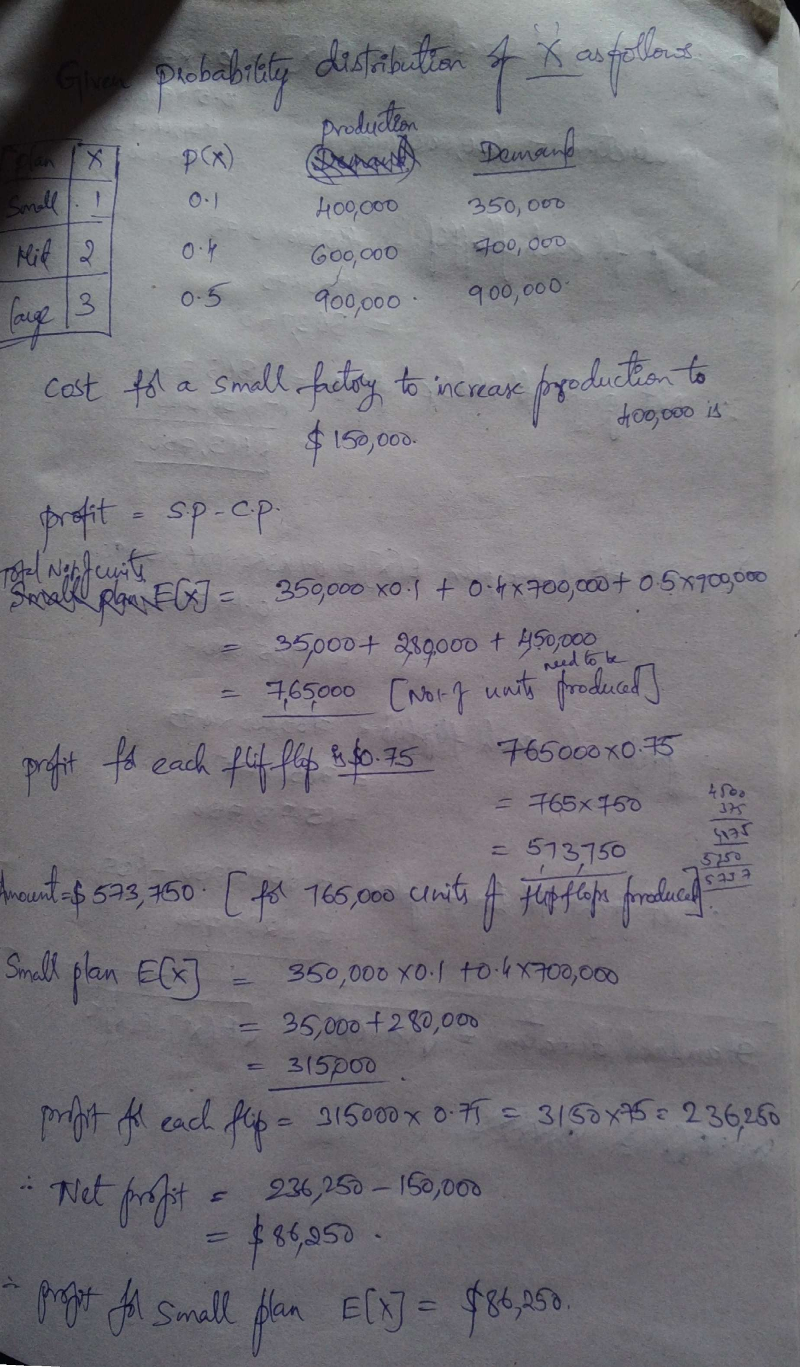 Given probability distribution of 'X' as follows.
production
plan X P(X) Demand
Small 1 0.1 400,000 350,000
Mid 2 0.4 600,000 700,000
large 3 0.5 900,000 900,000
cost for a small factory to increase production to
400,000 is
$150,000.
profit = S.P - C.P.
Total No. of units
Small plan E[X] = 350,000 x0.1 + 0.4x700,000+ 0.5x900,000
= 35,000+ 280,000 + 450,000
need to be
= 765,000 [No. of units produced]
profit for each flif flop is $0.75 765000x0.75
= 765x750
= 573,750
4500
375
4875
5250
Amount=$573,750. [for 765,000 units of flipflops produced].
Small plan E[X] = 350,000 x0.1 +0.4x700,000
= 35,000+280,000
= 315,000.
profit for each flip = 315000x 0.75 = 3150x75= 236,250
∴ Net profit = 236,250-150,000
= $86,250.
∴ profit for Small plan E[X] = $86,250.